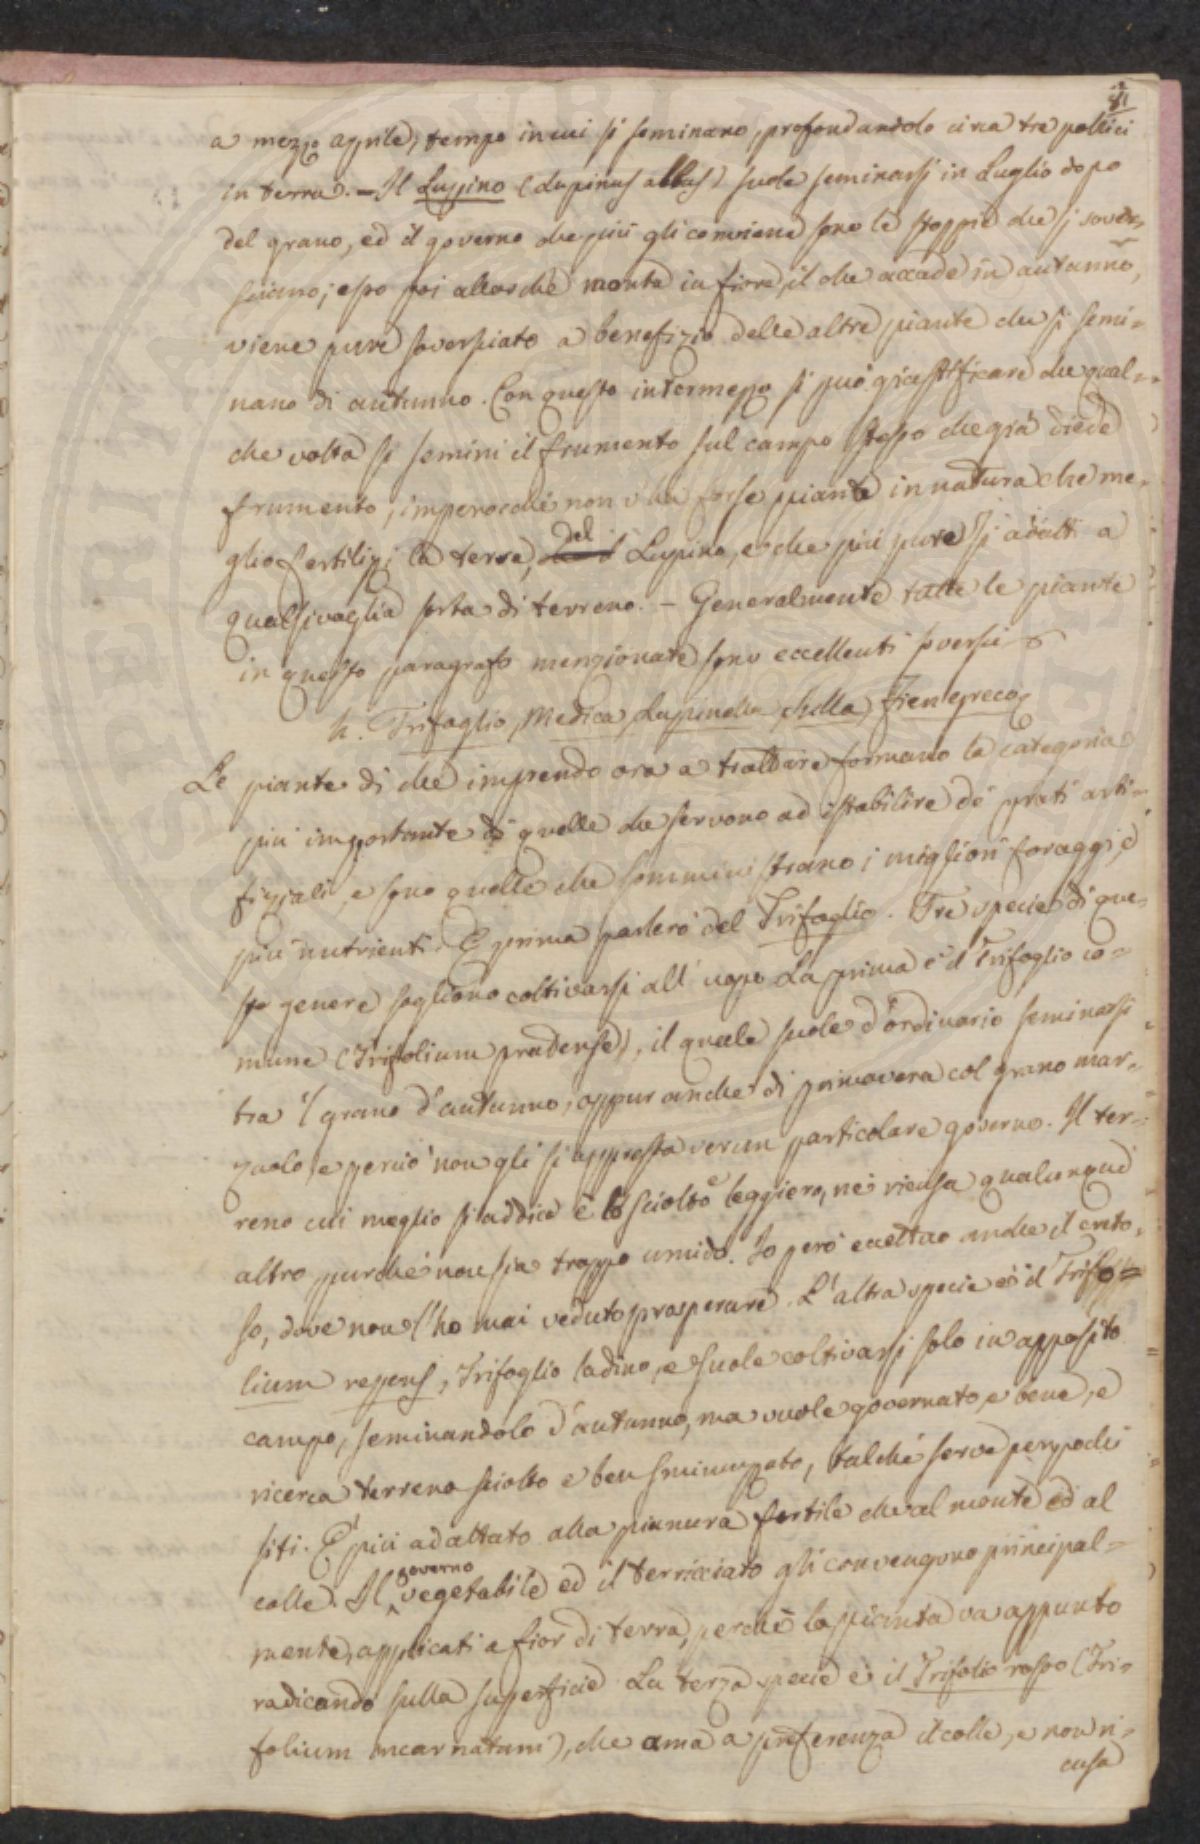 81
a mezzo aprile, tempo in cui si seminano, profondandolo circa tre pollici
in terra. — Il Luppino (Lupinus albus) suole seminarsi in Luglio dopo
del grano, ed il governo che più gli conviene sono le stoppie che si sover-
sciano; esso poi allorché monta in fiore, il che accade in autunno,
viene pure soversciato a benefizio delle altre piante che si semi-
nano di autunno. Con questo intermezzo si può giustificare che qual-
che volta si semini il frumento sul campo stesso che già diede
frumento, imperocché non v'ha forse pianta in natura che me-
glio fertilizzi la terra, del Lupino, e che più pure si adatti a
qualsivoglia sorta di terreno. — Generalmente tutte le piante
in questo paragrafo menzionate sono eccellenti soversci
h. Trifoglio, Medica, Lupinella, Sulla, Fienegreco
Le piante di che imprendo ora a trattare formano la categoria
più importante di quelle che servono ad istabilire de' prati arti-
fiziali, e sono quelle che somministrano i migliori foraggi, e
più nutrienti. E prima parlerò del Trifoglio. Tre specie di que-
sto genere sogliono coltivarsi all' uopo. La prima è il Trifoglio co-
mune (Trifolium pradense), il quale suole d'ordinario seminarsi
tra 'l grano d'autunno, oppur anche di primavera col grano mar-
zuolo, e perciò non gli si appresta verun particolare governo. Il ter-
reno cui meglio si addice è lo sciolto e leggiero, né ricusa qualunque
altro purché non sia troppo umido. Io però eccettuo anche il creto-
so, dove non l'ho mai veduto prosperare. L'altra specie è il Trifo=
lium repens, Trifoglio ladino, e suole coltivarsi solo in apposito
campo, seminandolo d'autunno, ma vuole governato, e bene, e
ricerca terreno sciolto e ben sminuzzato, talché serve per pochi
siti. È più adattato alla pianura fertile che al monte ed al
colle. Il governo vegetabile ed il terricciato gli convengono principal-
mente, applicati a fior di terra, perché la pianta va appunto
radicando sulla superficie. La terza specie è il Trifolio rosso (Tri-
folium incarnatum), che ama a preferenza il colle, e non ri-
cusa